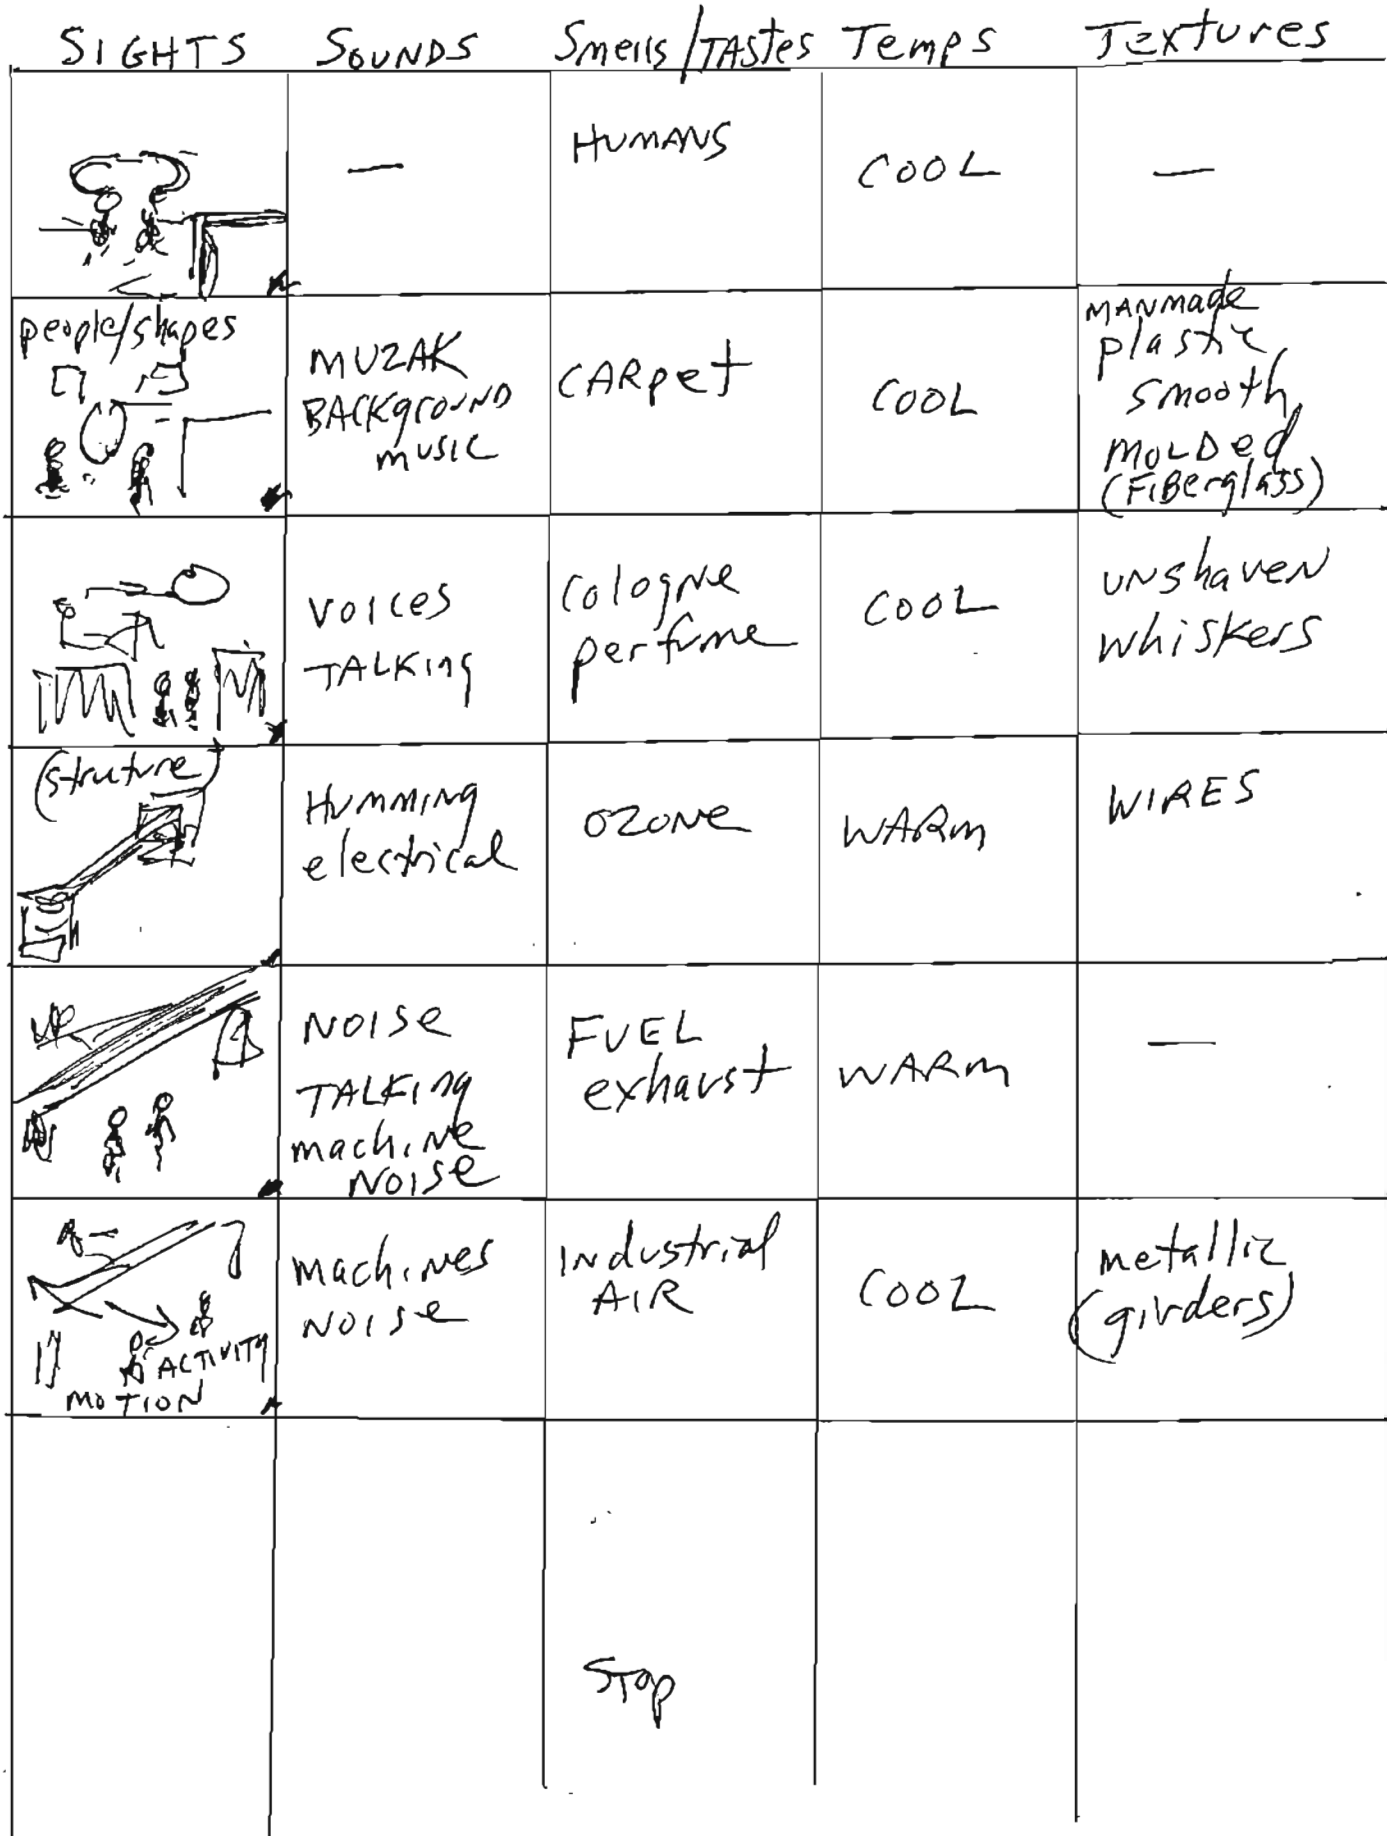 SIGHTS SOUNDS Smells/TAstes Temps Textures
— HUMANS COOL —
people/shapes
MUZAK
BACKgroUND
music
CARpet
COOL
MANmade
plastic,
smooth,
MOLDed
(FIBerglass)
VOICES
TALKINg
cologne
perfume
COOL
UNshaveN
whiskers
(structure)
HummINg
electrical
OZONe
WARm
WIRES
UP
NOISe
TALKINg
machiNe
NOISe
FUEL
exhaust
WARm
—
machiNes
NOISe
INdustrial
AIR
COOL
metallic
(girders)
ACTIVITy
MOTION
STop